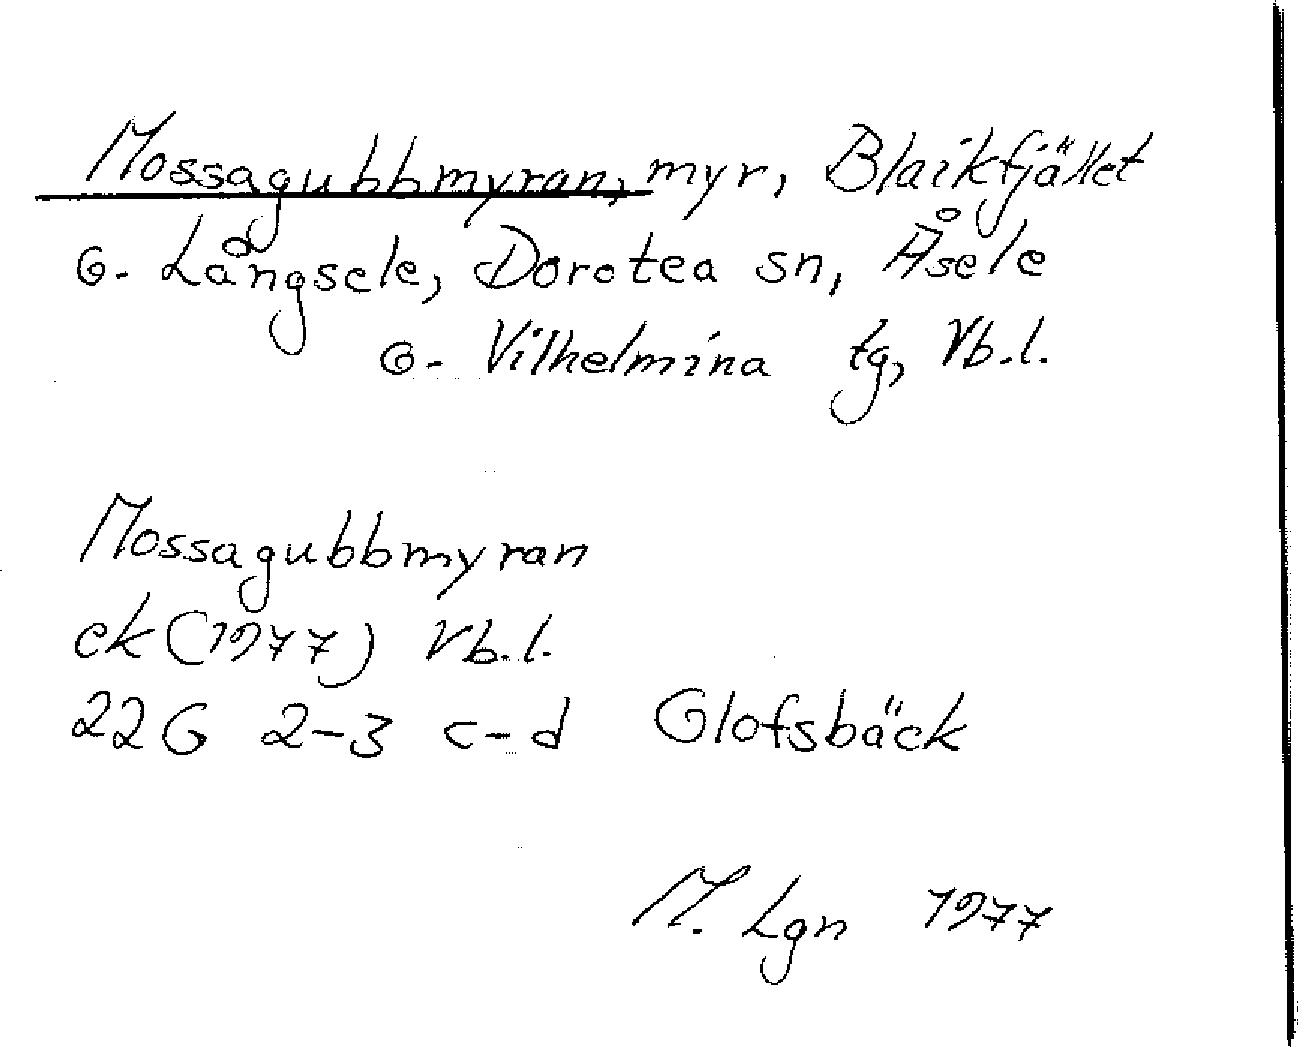 Mossagubbmyran, myr, Blaikfjället
o. Långsele, Dorotea sn, Åsele
o. Vilhelmina tg, Vb.l.
Mossagubbmyran
ek (1977) Vb.l.
22G 2-3 c-d Glofsbäck
M. Lgn 1977